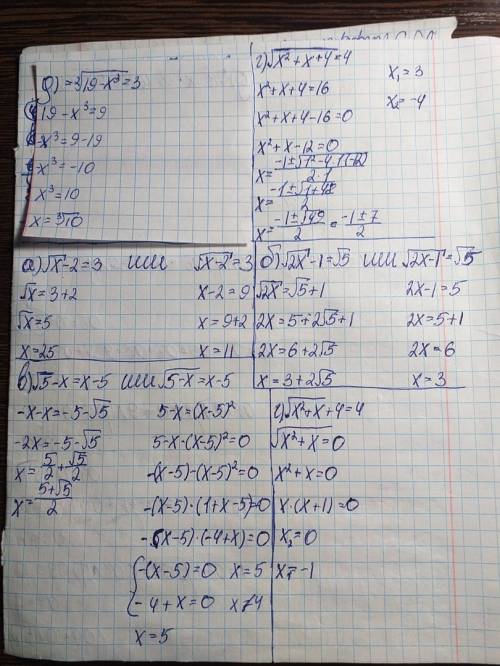 д) = ³√19-x³ = 3
19-x³=9
-x³=9-19
-x³=-10
x³=10
x=³√10
г) √x²+x+4=4
x²+x+4=16
x²+x+4-16=0
x²+x-12=0
x= -1±√1²-4·1·(-12) / 2·1
x= -1±√1+48 / 2
x= -1±√49 / 2 = -1±7 / 2
x₁=3
x₂=-4
а) √x-2=3 или √x-2=3
√x=3+2 x-2=9
√x=5 x=9+2
x=25 x=11
б) √2x-1=√5 или √2x-1=√5
√2x=√5+1 2x-1=5
2x=5+2√5+1 2x=5+1
2x=6+2√5 2x=6
x=3+2√5 x=3
в) √5-x=x-5 или √5-x=x-5
-x-x=-5-√5 5-x=(x-5)²
-2x=-5-√5 5-x-(x-5)²=0
x= 5/2 + √5/2 -(x-5)-(x-5)²=0
x= 5+√5 / 2 -(x-5)·(1+x-5)=0
-(x-5)·(-4+x)=0
{-(x-5)=0 x=5
-4+x=0 x≠4
x=5
г) √x²+x+4=4
√x²+x=0
x²+x=0
x·(x+1)=0
x₂=0
x=-1